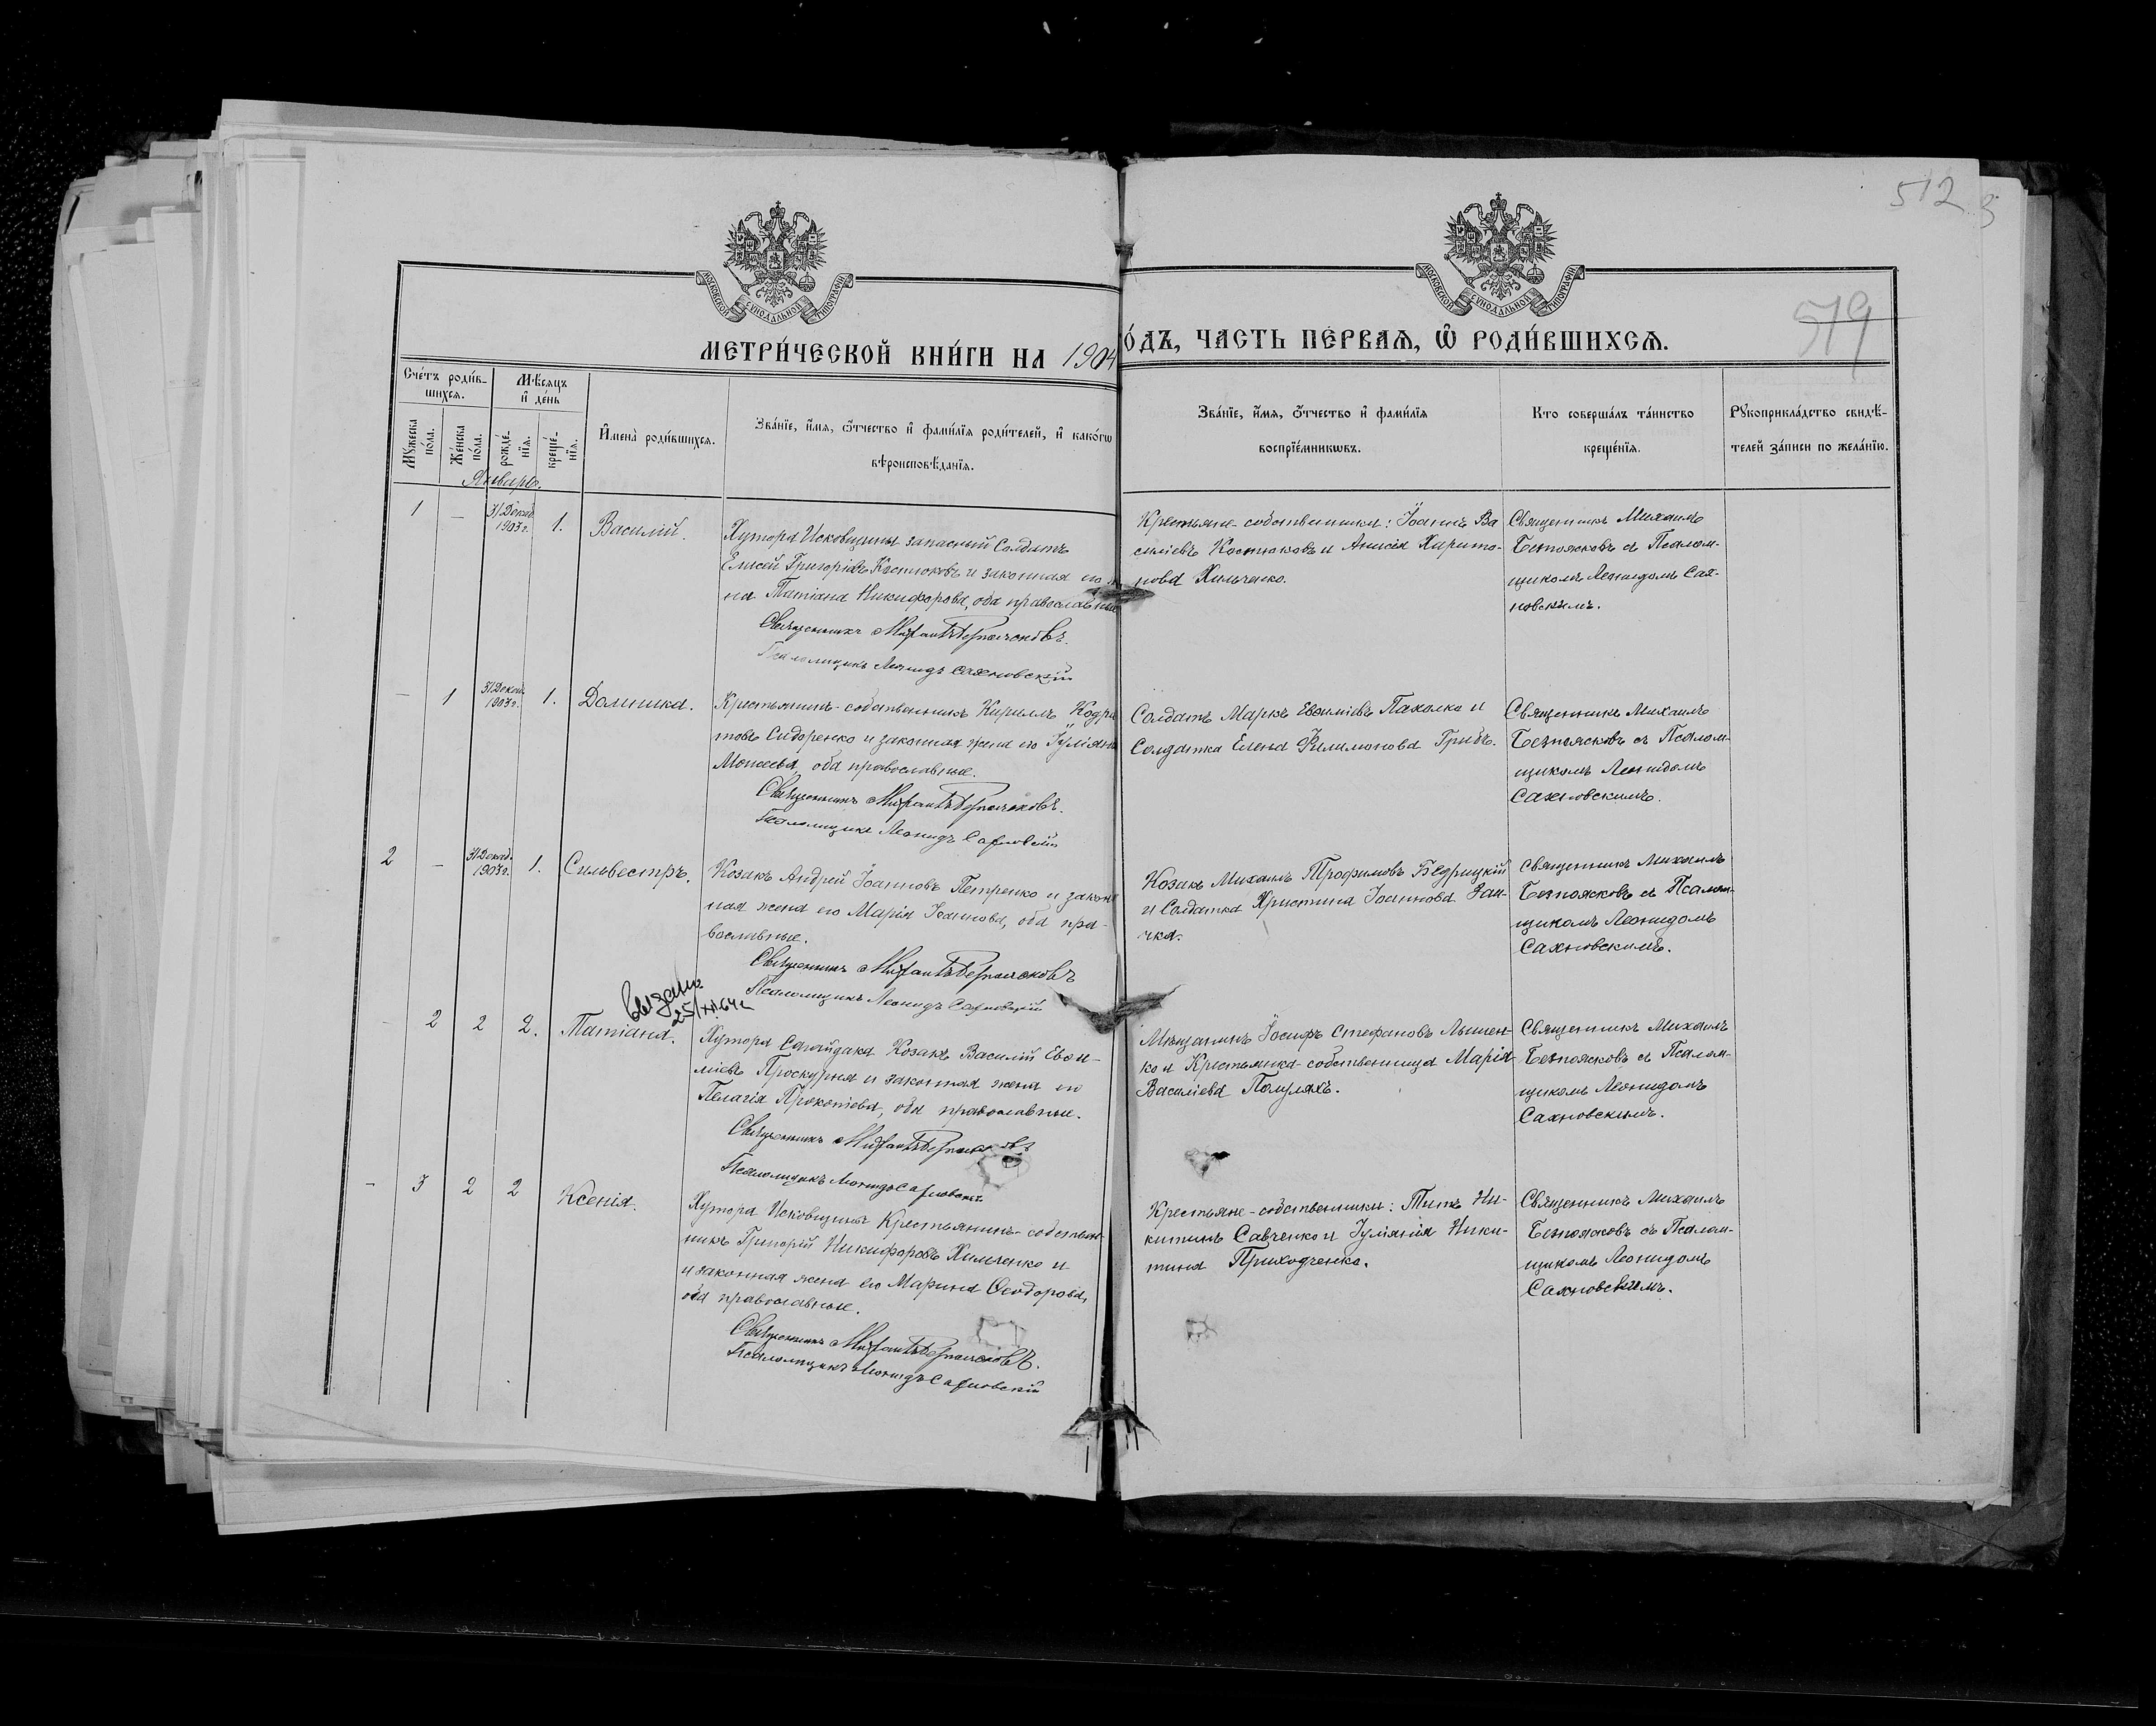 512
3
519
МОСКОВСКОЙ СУНОДАЛЬНОЙ ТИПОГРАФІИ
МОСКОВСКОЙ СУНОДАЛЬНОЙ ТИПОГРАФІИ
МЕТРИ́ЧЕСКОЙ КНИ́ГИ НА 1904
О́ДЪ, ЧАСТЬ ПЕ́РВАѦ, Ѿ РОДИ́ВШИХСѦ.
Сче́тъ роди́в-
шихсѧ.
Мужеска по́ла.
Же́нска по́ла.
Мѣсѧцъ и де́нь
рожде́-
нїѧ.
креще́-
нїѧ.
Имена̀ роди́вшихсѧ.
Зва́нїе, и́мѧ, ѻ҆́тчество и фами́лїѧ роди́телей, и како́гѡ
вѣроисповѣданїѧ.
Зва́нїе, и́мѧ, ѻ҆́тчество и фами́лїѧ
воспрїе́мникѡвъ.
Кто соверша́лъ та́инство
креще́нїѧ.
Рукоприкла́дство свидѣ-
телей за́писи по жела́нїю.
Январь.
1
—
31 Декаб.
1903 г.
1.
Василій.
Хутора Исковщины запасный Солдатъ
Елисей Григоріевъ Костюковъ и законная его
на Татіана Никифорова, оба православные
Священникъ Михаилъ Безпоясковъ.
Псаломщикъ Леонидъ Сахновскій
Крестьяне-собственники: Іоаннъ Ва
силіевъ Костюковъ и Анисія Харито-
нова Хильченко.
Священникъ Михаилъ
Безпоясковъ съ Псалом-
щикомъ Леонидомъ Сах-
новскимъ.
—
1
31 Декаб.
1903 г.
1.
Домника.
Крестьянинъ-собственникъ Кириллъ Кодра
товъ Сидоренко и законная жена его Іуліанія
Моисеева, оба православные.
Священникъ Михаилъ Безпоясковъ.
Псаломщикъ Леонидъ Сахновскій
Солдатъ Маркъ Евѳиміевъ Пахолка и
Солдатка Елена Филимонова Грибъ.
Священникъ Михаилъ
Безпоясковъ съ Псалом-
щикомъ Леонидомъ
Сахновскимъ.
2
—
31 Декаб.
1903 г.
1.
Сильвестръ.
Козакъ Андрей Іоанновъ Петренко и закон
ная жена его Марія Іоаннова, оба пра-
вославные.
Священникъ Михаилъ Безпоясковъ
Псаломщикъ Леонидъ Сахновскій
Козакъ Михаилъ Трофимовъ Бедрицкій
и Солдатка Христина Іоаннова Заи-
чка.
Священникъ Михаилъ
Безпоясковъ съ Псалом-
щикомъ Леонидомъ
Сахновскимъ.
Выдано
25/XI 64г.
—
2
2
2.
Татіана.
Хутора Сагайдака Козакъ Василій Евѳи-
міевъ Проскурня и законная жена его
Пелагія Прокопіева, оба православные.
Священникъ Михаилъ Безпоясковъ
Псаломщикъ Леонидъ Сахновскій
Мѣщанинъ Іосифъ Стефановъ Лымен-
ко и Крестьянка-собственница Марія
Василіева Полулякъ.
Священникъ Михаилъ
Безпоясковъ съ Псалом-
щикомъ Леонидомъ
Сахновскимъ.
—
3
2
2
Ксенія.
Хутора Исковщины Крестьянинъ-собствен-
никъ Григорій Никифоровъ Хильченко и
и законная жена его Марина Ѳеодорова,
оба православные.
Священникъ Михаилъ Безпоясковъ.
Псаломщикъ Леонидъ Сахновскій
Крестьяне-собственники: Титъ Ни-
китинъ Савченко и Іуліанія Ники-
тина Приходченко.
Священникъ Михаилъ
Безпоясковъ съ Псалом-
щикомъ Леонидомъ
Сахновскимъ.